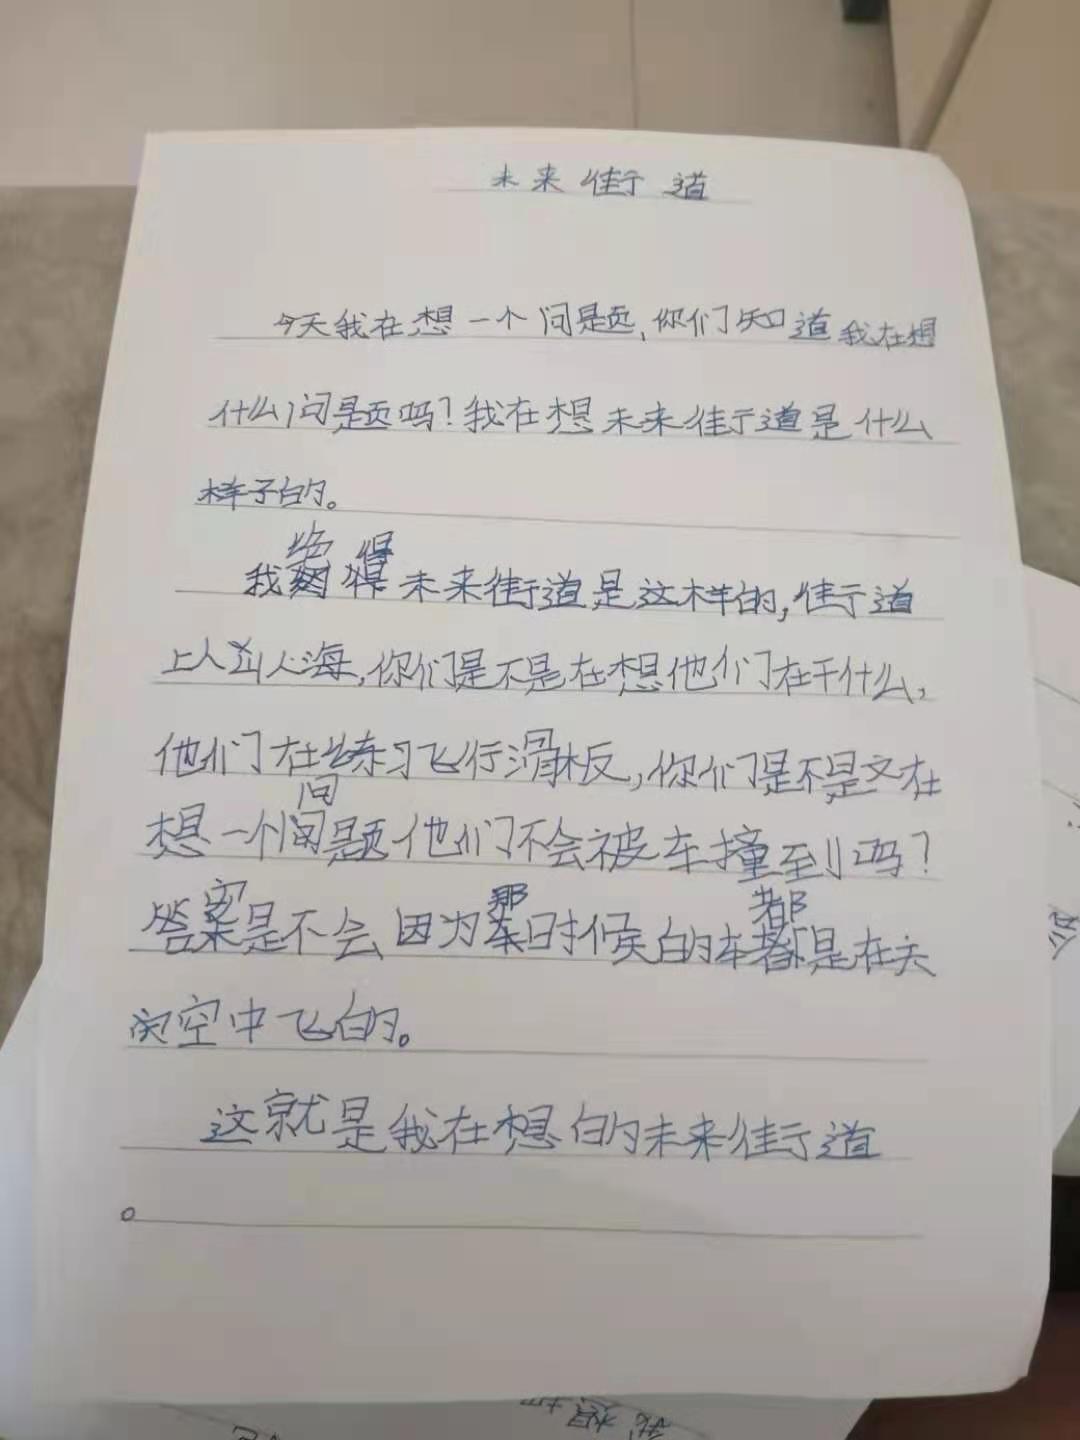 未来街道
今天我在想一个问题,你们知道我在想
什么问题吗?我在想未来街道是什么
样子的。
我觉得未来街道是这样的,街道
上人山人海,你们是不是在想他们在干什么,
他们在练习飞行滑板,你们是不是又在
想一个问题他们不会被车撞到吗?
答案是不会因为那时候的车都是在天
空中飞的。
这就是我在想的未来街道
。